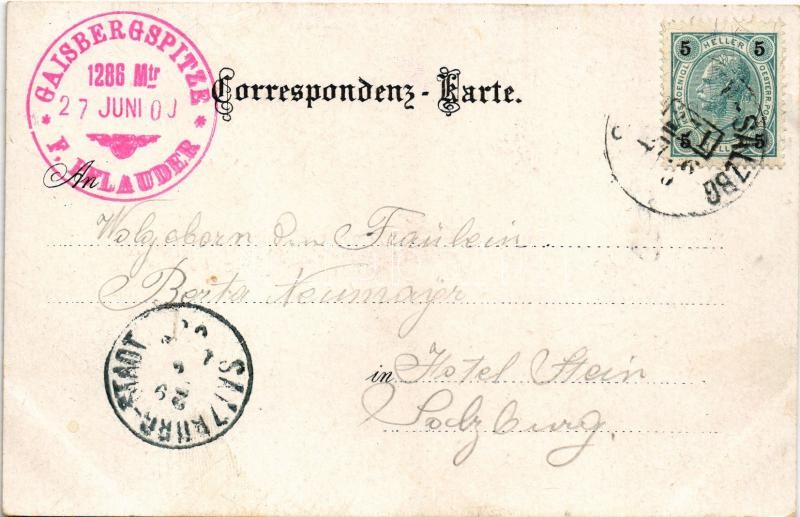 GAISBERGSPITZE
1286 Mtr
27 JUNI 00
Correspondenz-Karte.
5 HELLER 5
5 5
SALZBG
An
Wolgeborn den Fräulein
Berta Neumayer
in Hotel Stein
Salzburg.
SALZBURG-STADT